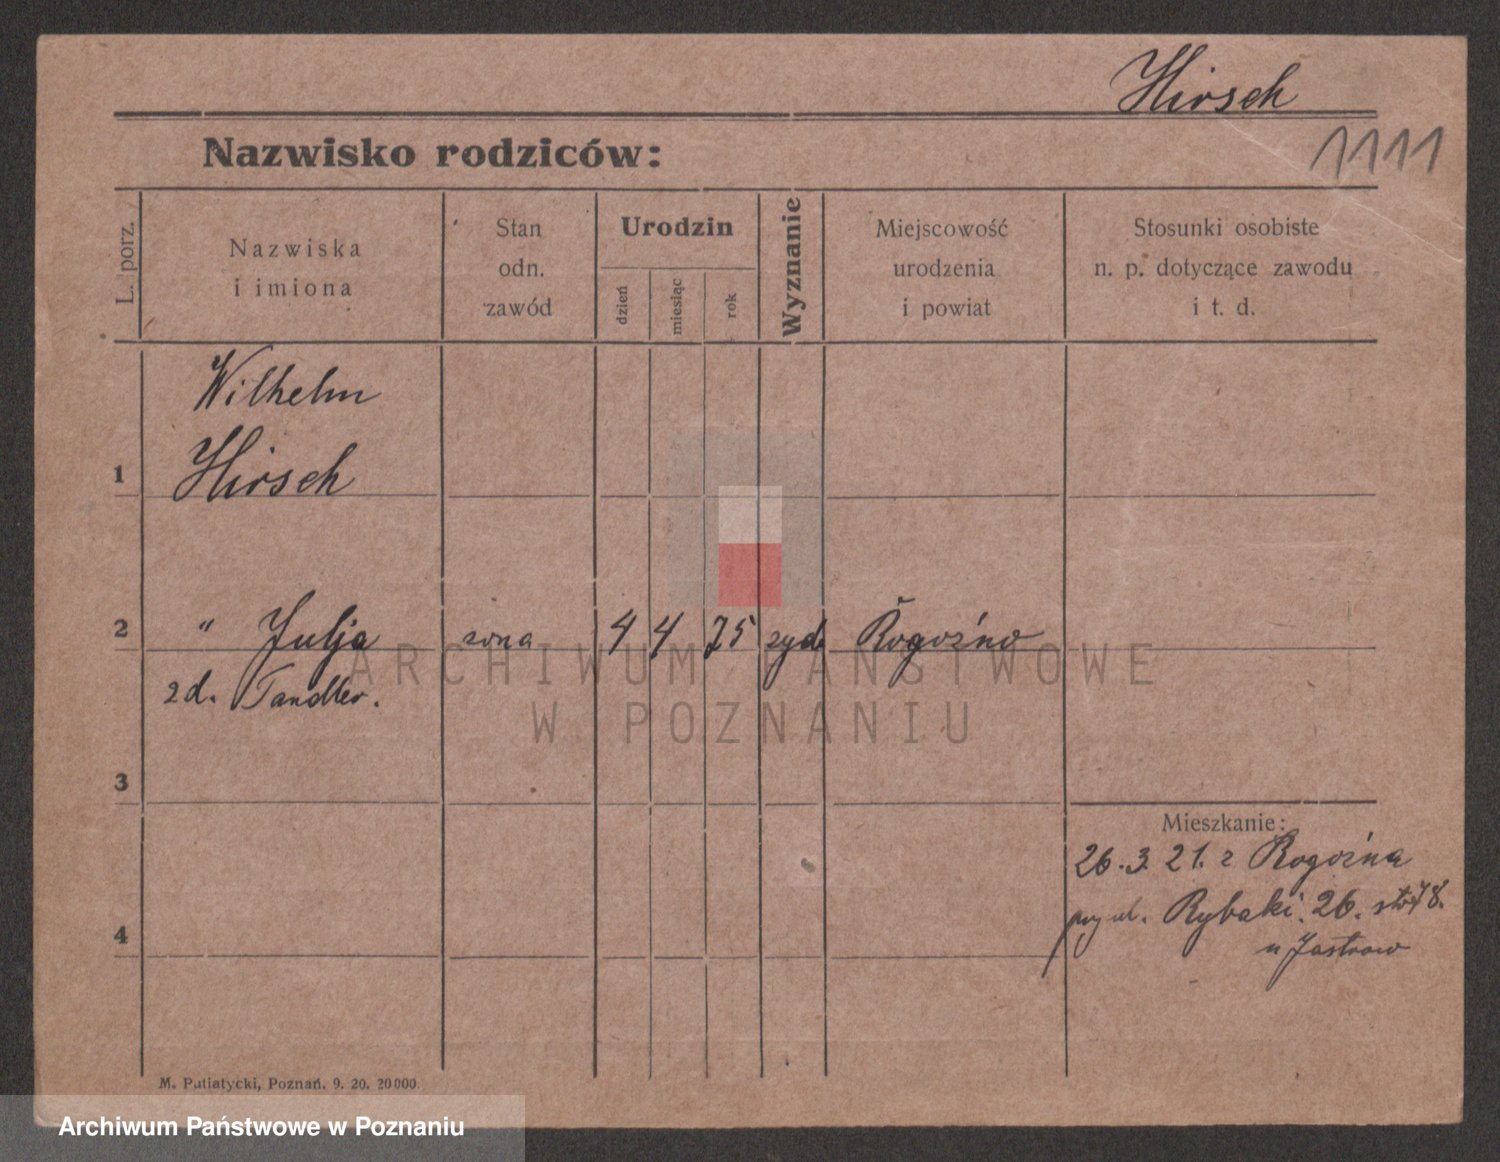 Hirsch
1111
Nazwisko rodziców:
L. porz.
Nazwiska
i imiona
Stan
odn.
zawód
Urodzin
dzień
miesiąc
rok
Wyznanie
Miejscowość
urodzenia
i powiat
Stosunki osobiste
n. p. dotyczące zawodu
i t. d.
Wilhelm
1 Hirsch
2 " Julja żona 4 4 75 żyd Rogoźno
zd. Tandler.
3
Mieszkanie:
26.3.21. z Rogoźna
przy ul. Rybaki. 26.
4
u Jastrow
M. Putiatycki, Poznań. 9. 20. 20000.
ARCHIWUM PAŃSTWOWE
W POZNANIU
Archiwum Państwowe w Poznaniu